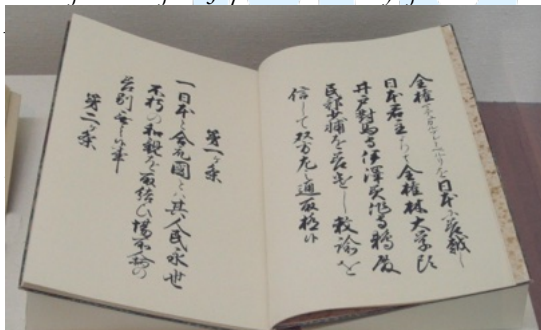 全権を日本ニ差越し
日本君主よりハ全権林大学頭
井戸對馬守伊澤美作守鵜殿
民部少輔を差遣し敕諭を
信して双方左之通取極候
第一ヶ条
一日本と合衆國とハ其人民永世
不朽の和親を取結ひ場所人柄の
差別無之事
第二ヶ条